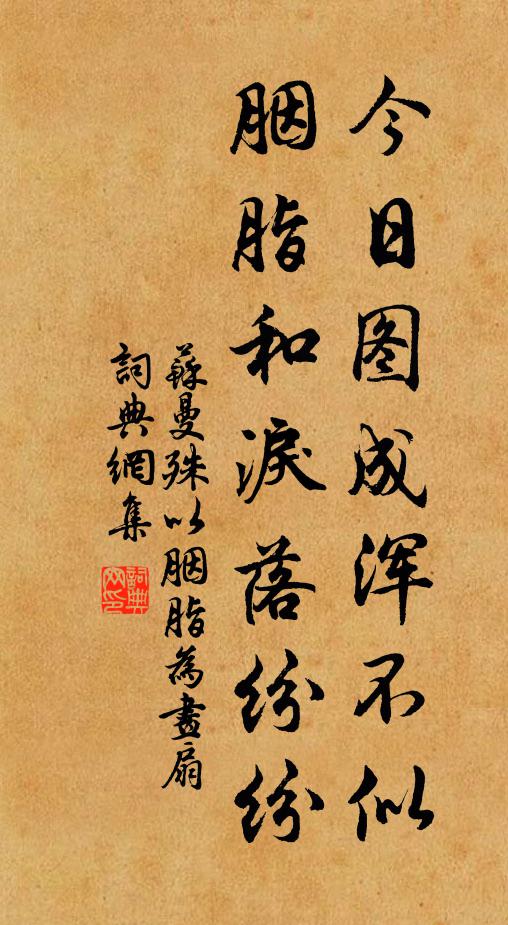 今日图成浑不似
胭脂和淚落纷纷
蘇曼殊以胭脂為畫扇
詞典網集
詞典網印